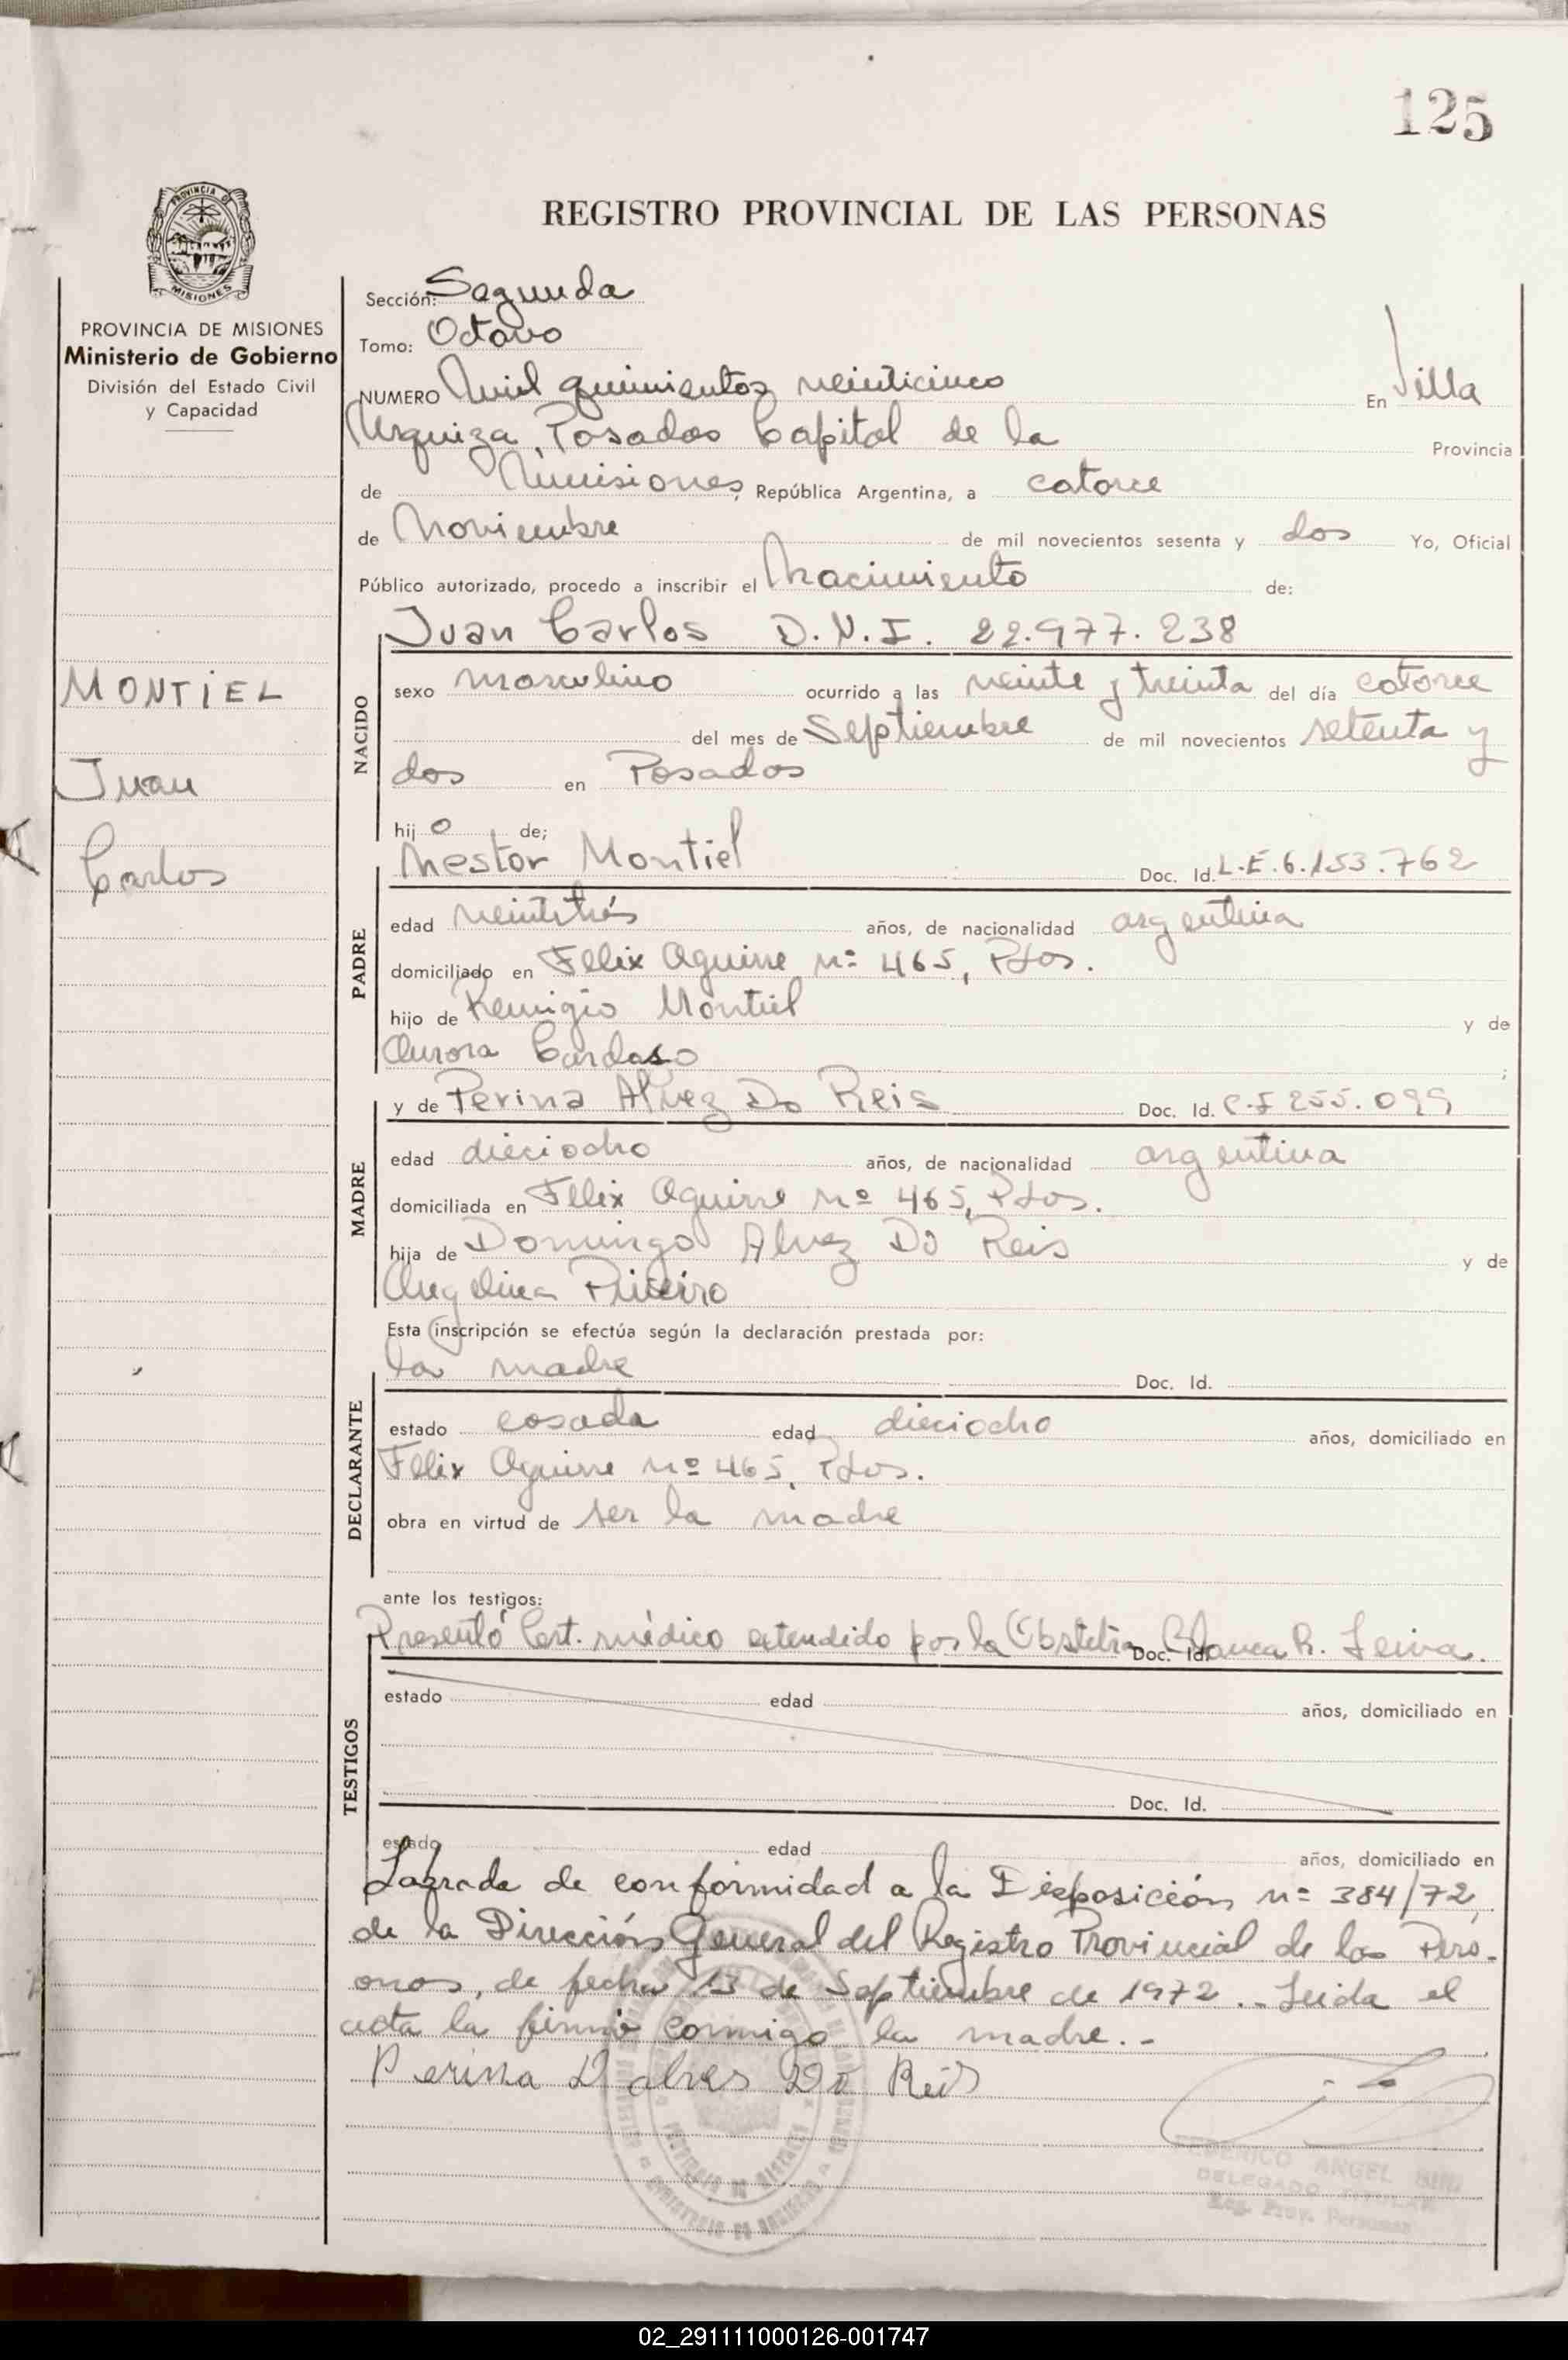 125
REGISTRO PROVINCIAL DE LAS PERSONAS
PROVINCIA DE MISIONES
Ministerio de Gobierno
División del Estado Civil
y Capacidad
MONTIEL
Juan
Carlos
Sección: Segunda
Tomo: Octavo
NUMERO Mil quinientos veinticinco En Villa
Urquiza, Posadas Capital de la Provincia
de Misiones, República Argentina, a catorce
de Noviembre de mil novecientos sesenta y dos Yo, Oficial
Público autorizado, procedo a inscribir el Nacimiento de:
Juan Carlos D.N.I. 22.977.238
NACIDO
sexo masculino ocurrido a las veinte y treinta del día catorce
del mes de Septiembre de mil novecientos setenta y
dos en Posadas
hijo de;
Nestor Montiel Doc. Id. L.E. 6.153.762
PADRE
edad veintitrés años, de nacionalidad argentina
domiciliado en Felix Aguirre nº 465, Pdas.
hijo de Remigio Montiel y de
Aurora Cardoso ;
y de Perina Alvez Do Reis Doc. Id. C.I 255.099
MADRE
edad dieciocho años, de nacionalidad argentina
domiciliada en Felix Aguirre nº 465, Pdas.
hija de Domingo Alvez Do Reis y de
Angelina
Esta inscripción se efectúa según la declaración prestada por:
la madre Doc. Id.
DECLARANTE
estado casada edad dieciocho años, domiciliado en
Felix Aguirre nº 465, Pdas.
obra en virtud de ser la madre
ante los testigos:
Presentó Cert. médico extendido por la Obstetra Doc. Id. Blanca R. Leiva.
TESTIGOS
estado edad años, domiciliado en
Doc. Id.
estado edad años, domiciliado en
Labrada de conformidad a la Disposición nº 384/72,
de la Dirección General del Registro Provincial de las Pers-
onas, de fecha 13 de Septiembre de 1972.. Leida el
acta la firmó conmigo la madre.-
Perina D alves Do Reis
FEDERICO ANGEL
DELEGADO TITULAR
Reg. Prov. Personas
02_291111000126-001747